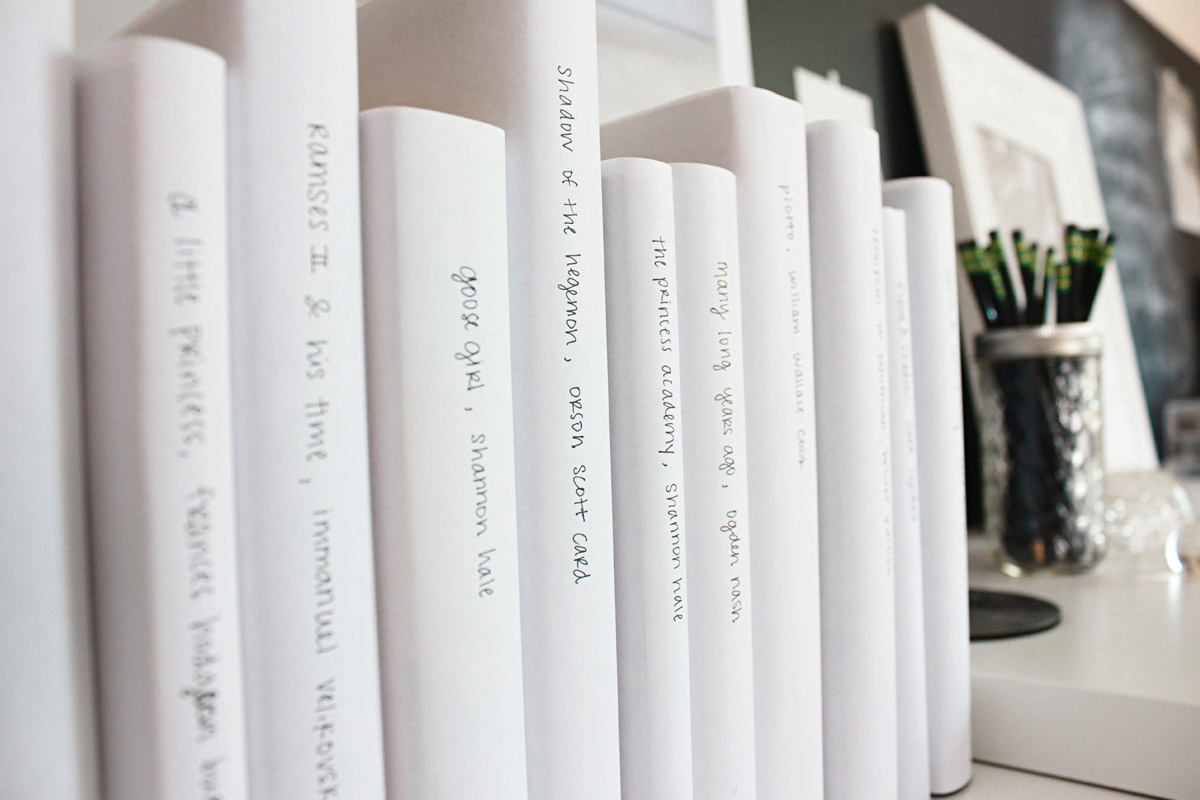 a little princess, frances hodgson bur
Ramses II & his time, immanuel velikovsk
goose girl, shannon hale
shadow of the hegemon, orson scott card
the princess academy, shannon hale
many long years ago, ogden nash
plotto, william wallace cook